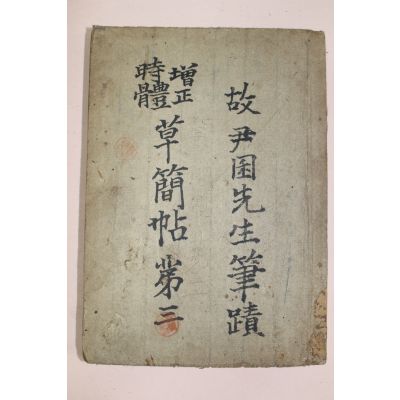 故尹困先生筆蹟
增正
時體
草簡帖 第三